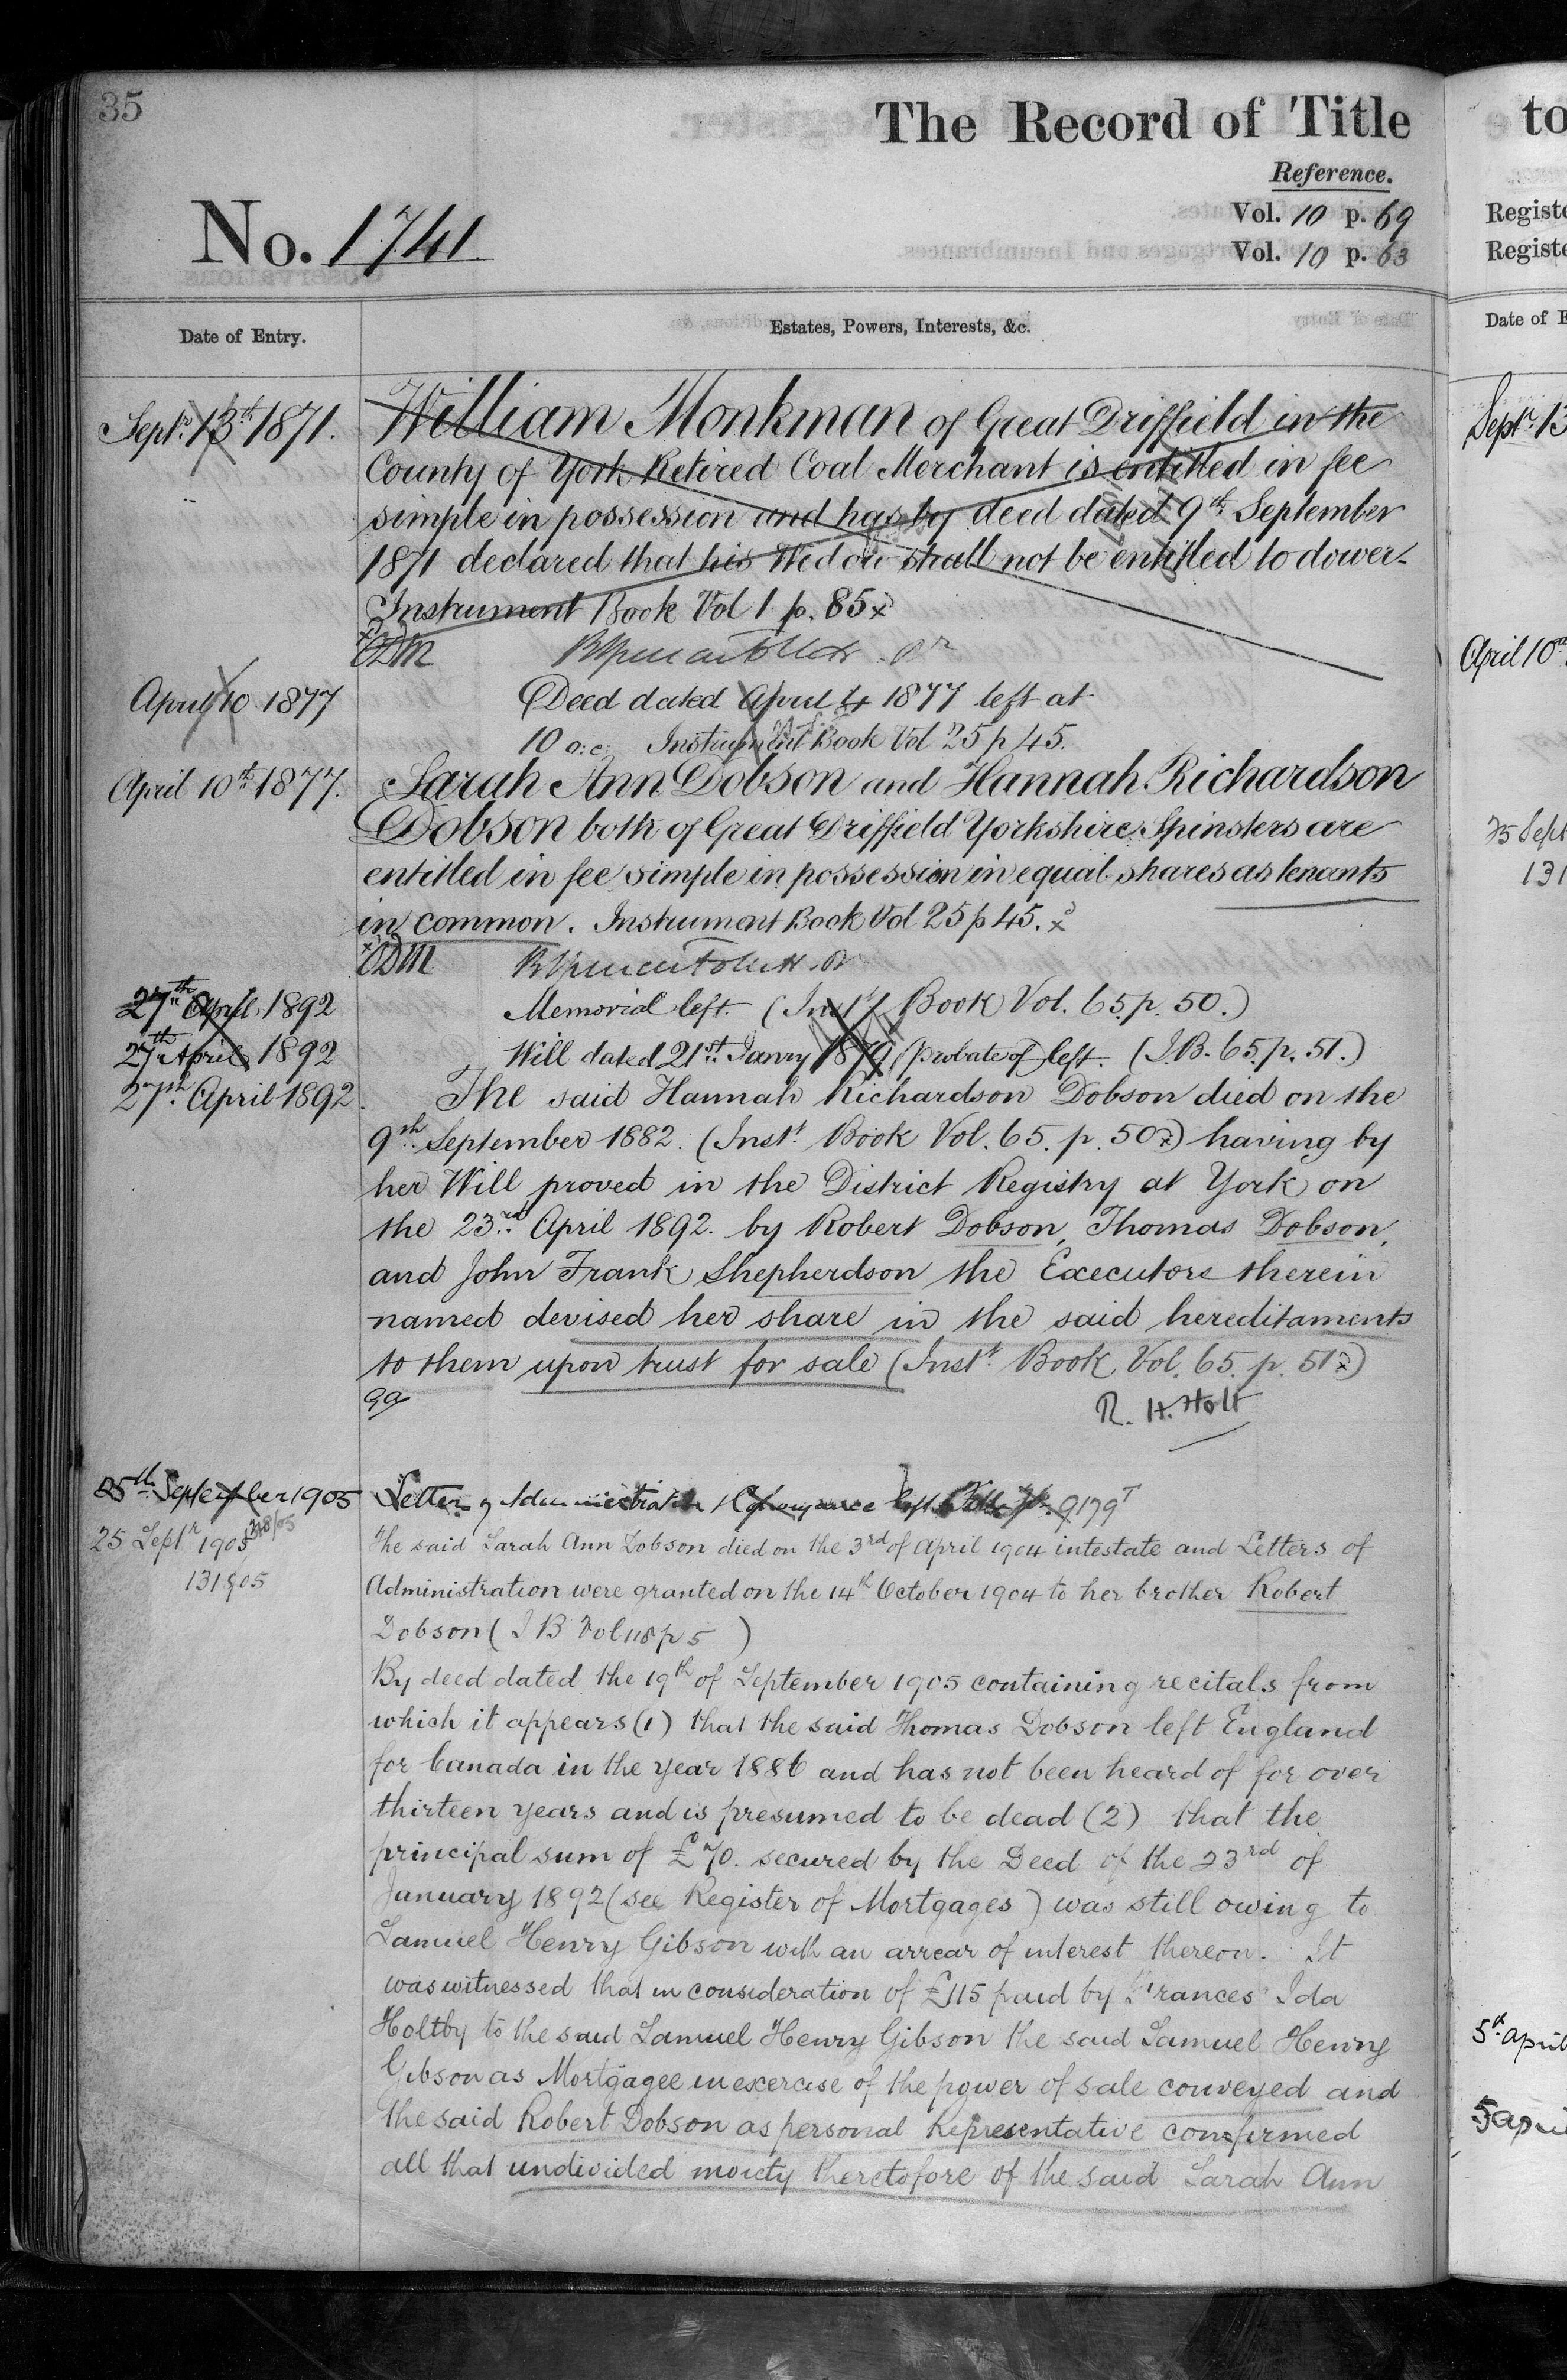 35
The Record of Title
Reference.
No. 1741
Vol. 10 p. 69
Vol. 10 p. 63
Date of Entry.
Estates, Powers, Interests, &c.
Septr. 13th 1871.
William Monkman of Great Driffield in the
County of York Retired Coal Merchant is entitled in fee
simple in possession and has by deed dated 9th September
1871 declared that his Widow shall not be entitled to dower.
Instrument Book Vol 1 p. 85
April 10 1877
Deed dated April 4 1877 left at
10 o.c. Instrument Book Vol 25 p 45.
April 10th 1877.
Sarah Ann Dobson and Hannah Richardson
Dobson both of Great Driffield Yorkshire Spinsters are
entitled in fee simple in possession in equal shares as tenants
in common. Instrument Book Vol 25 p 45.
27th April 1892
Memorial left. (Inst. Book Vol. 65. p. 50.)
27th April 1892
Will dated 21st Janry 1879 (probate of) left. (I.B. 65. p. 51.)
27th April 1892.
The said Hannah Richardson Dobson died on the
9th September 1882. (Instt. Book Vol. 65. p. 50) having by
her Will proved in the District Registry at York on
the 23rd April 1892. by Robert Dobson, Thomas Dobson,
and John Frank Shepherdson the Executors therein
named devised her share in the said hereditaments
to them upon trust for sale (Instt. Book Vol. 65. p. 51)
R. H. Holt
25th September 1905
Letters of Administration & Conveyance left
25 Septr 1905
The said Sarah Ann Dobson died on the 3rd of April 1904 intestate and Letters of
Administration were granted on the 14th October 1904 to her brother Robert
Dobson (I B Vol 118 p 5 )
By deed dated the 19th of September 1905 containing recitals from
which it appears (1) that the said Thomas Dobson left England
for Canada in the year 1886 and has not been heard of for over
thirteen years and is presumed to be dead (2) that the
principal sum of £70. secured by the Deed of the 23rd of
January 1892 (see Register of Mortgages) was still owing to
Samuel Henry Gibson with an arrear of interest thereon. It
was witnessed that in consideration of £115 paid by Frances Ida
Holtby to the said Samuel Henry Gibson the said Samuel Henry
Gibson as Mortgagee in exercise of the power of sale conveyed and
the said Robert Dobson as personal Representative confirmed
all that undivided moiety theretofore of the said Sarah Ann
to
Registe
Registe
Date of E
Septr. 13
April 10th
25 Sept
131
5th April
5 apri